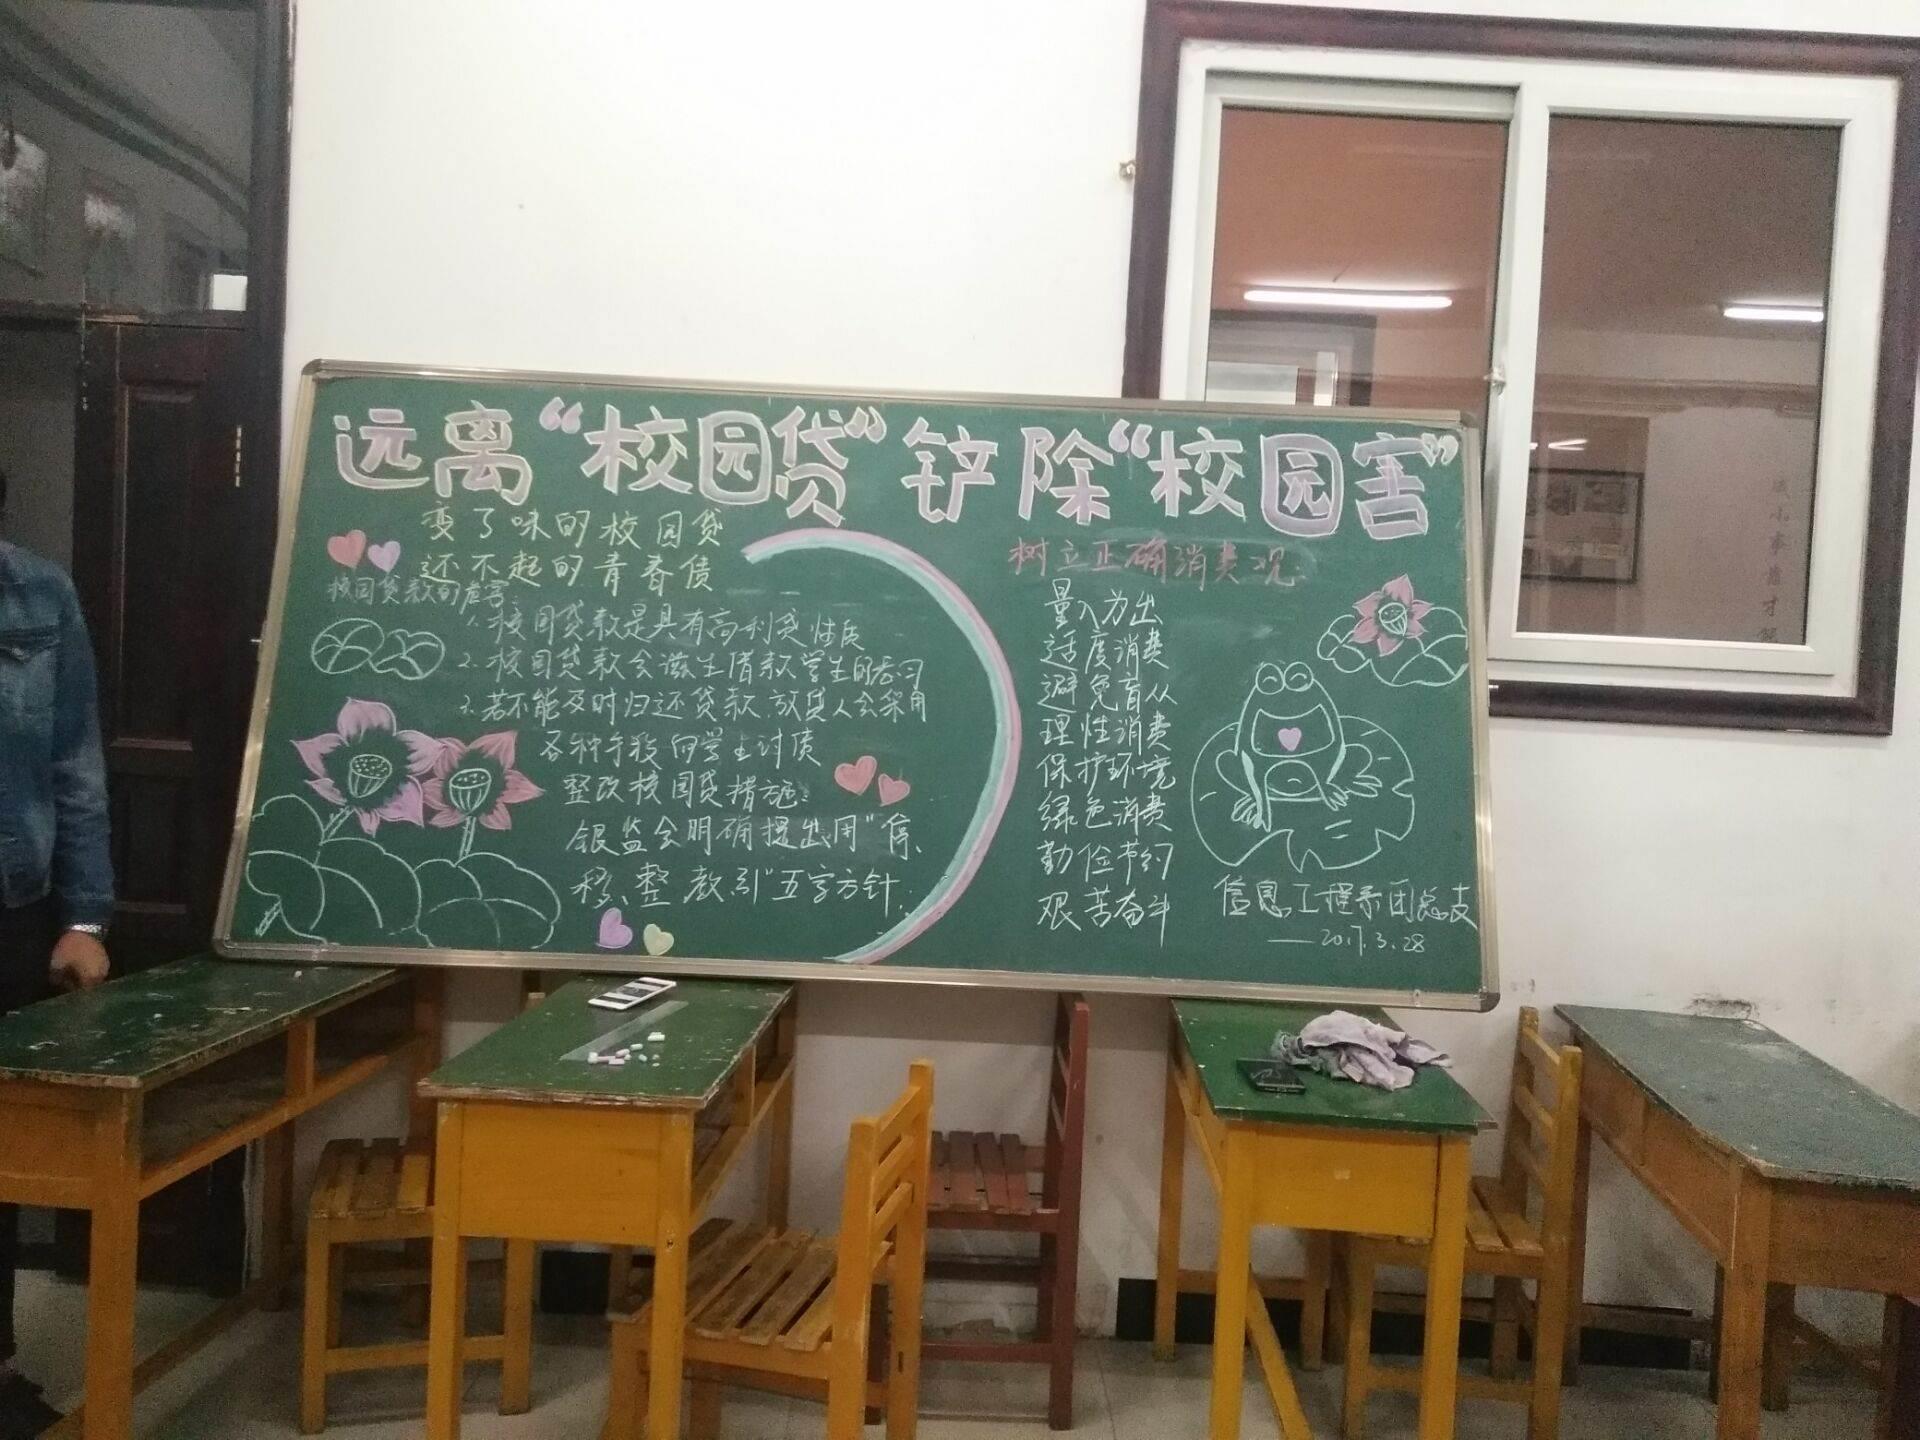 远离“校园贷”铲除“校园害”
变了味的校园贷
还不起的青春债
校园贷款的危害:
1.校园贷款是具有高利贷性质
2.校园贷款会滋生借款学生的恶习
3.若不能及时归还贷款,放贷人会采用
各种手段向学生讨债
整改校园贷措施:
银监会明确提出用“停、
移、整、教、引”五字方针.
树立正确消费观:
量入为出
适度消费
避免盲从
理性消费
保护环境
绿色消费
勤俭节约
艰苦奋斗
信息工程系团总支
——2017.3.28